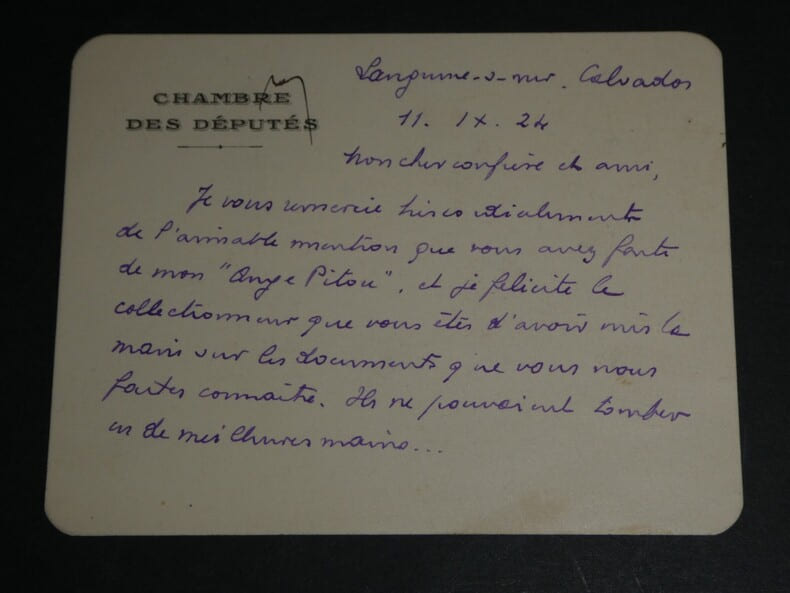 CHAMBRE
DES DÉPUTÉS
Langrune-s-mer. Calvados
11. IX. 24
Mon cher confrère et ami,
Je vous remercie très cordialement
de l'aimable mention que vous avez faite
de mon "Ange Pitou", et je félicite le
collectionneur que vous êtes d'avoir mis la
main sur les documents que vous nous
faites connaître. Ils ne pouvaient tomber
en de meilleures mains...